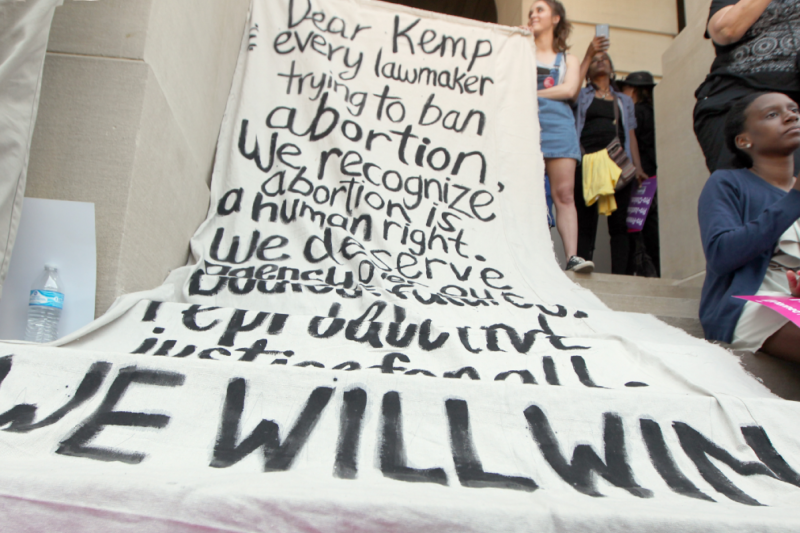 Dear Kemp
every lawmaker
trying to ban
abortion,
We recognize
abortion is
a human right.
We deserve
agency over
justice for all.
WE WILL WIN